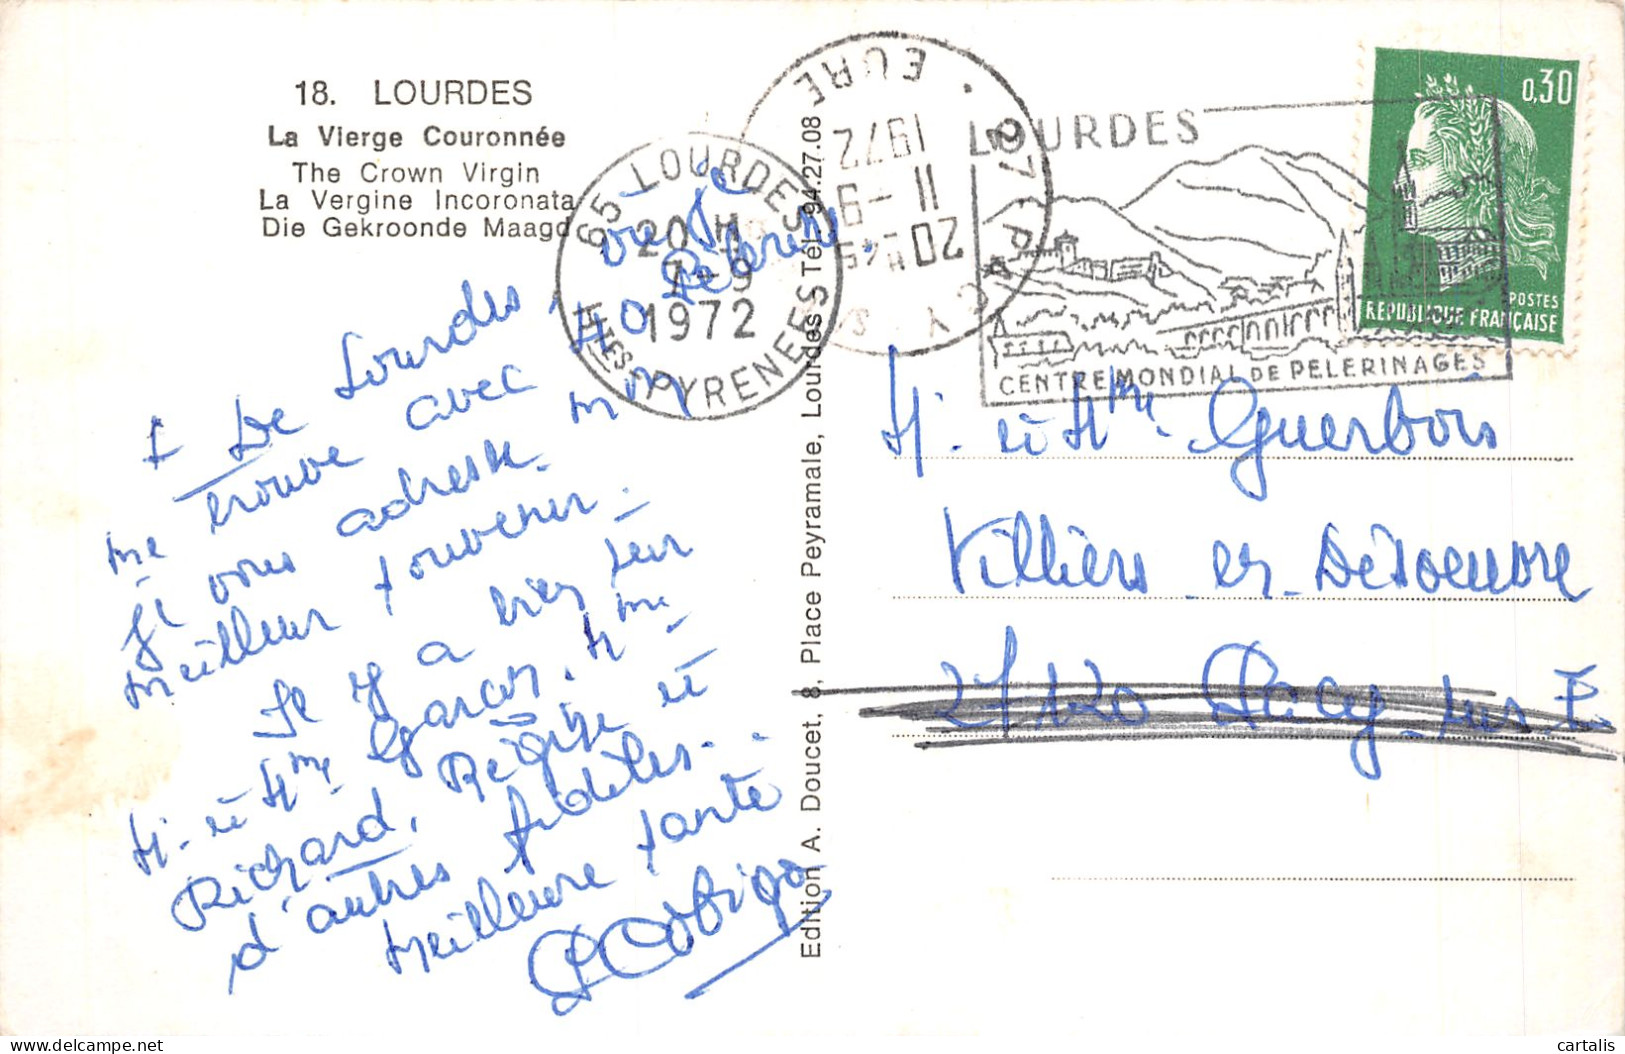 18. LOURDES
La Vierge Couronnée
The Crown Virgin
La Vergine Incoronata
Die Gekroonde Maagd
De Lourdes, où je
me trouve avec 40 Pèlerins
je vous adresse mon
meilleur souvenir.
Il y a bien sur
M. et Mme Garcon, Mme
Richard, Régise et
d'autres fidèles.
Meilleure santé
Edition A. Doucet, 8, Place Peyramale, Lourdes Tél. 94.27.08
65 LOURDES
20 H
7-9
1972
HTES-PYRENEES
27 PACY S
EURE
20H45
11-9
1972
LOURDES
CENTRE MONDIAL DE PELERINAGES
0,30
POSTES
REPUBLIQUE FRANÇAISE
M. et Mme Guerbois
Villiers en Désoeuvre
27120 Pacy sur E
cartalis
delcampe.net